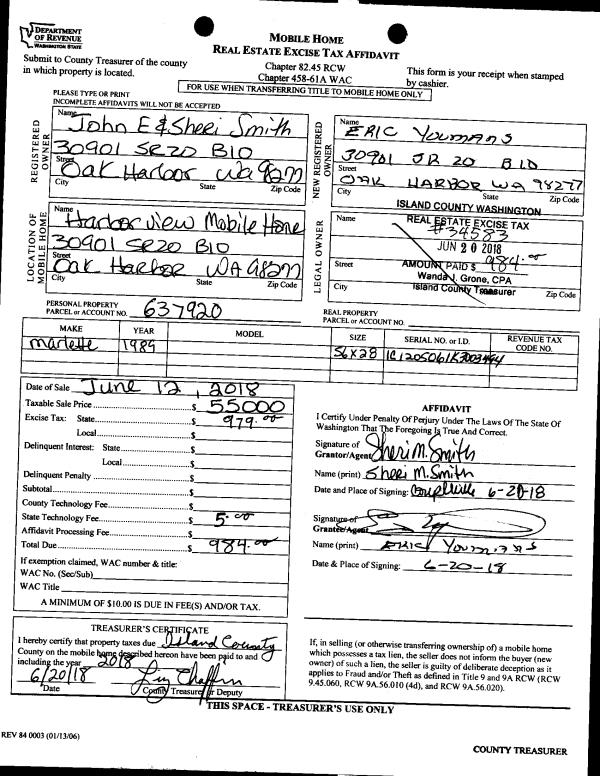 DEPARTMENT
OF REVENUE
WASHINGTON STATE
MOBILE HOME
REAL ESTATE EXCISE TAX AFFIDAVIT
Submit to County Treasurer of the county
in which property is located.
Chapter 82.45 RCW
Chapter 458-61A WAC
This form is your receipt when stamped
by cashier.
FOR USE WHEN TRANSFERRING TITLE TO MOBILE HOME ONLY
PLEASE TYPE OR PRINT
INCOMPLETE AFFIDAVITS WILL NOT BE ACCEPTED
REGISTERED OWNER
Name John E & Sheri Smith
30901 SR20 B10
Street Oak Harbor WA 98277
City State Zip Code
NEW REGISTERED OWNER
Name ERIC YOUMANS
30901 SR 20 B10
Street OAK HARBOR WA 98277
City State Zip Code
LOCATION OF MOBILE HOME
Name Harbor View Mobile Home
30901 SR20 B10
Street Oak Harbor WA 98277
City State Zip Code
LEGAL OWNER
Name
Street
City Zip Code
ISLAND COUNTY WASHINGTON
REAL ESTATE EXCISE TAX
#34583
JUN 20 2018
AMOUNT PAID $ 984.00
Wanda J. Grone, CPA
Island County Treasurer
PERSONAL PROPERTY
PARCEL or ACCOUNT NO. 637920
REAL PROPERTY
PARCEL or ACCOUNT NO.
MAKE YEAR MODEL SIZE SERIAL NO. or I.D. REVENUE TAX CODE NO.
Marlette 1989 56X28
Date of Sale June 12, 2018
Taxable Sale Price $ 55000
Excise Tax: State $ 979.00
Local $
Delinquent Interest: State $
Local $
Delinquent Penalty $
Subtotal $
County Technology Fee $
State Technology Fee $ 5.00
Affidavit Processing Fee $
Total Due $ 984.00
If exemption claimed, WAC number & title:
WAC No. (Sec/Sub)
WAC Title
A MINIMUM OF $10.00 IS DUE IN FEE(S) AND/OR TAX.
AFFIDAVIT
I Certify Under Penalty Of Perjury Under The Laws Of The State Of
Washington That The Foregoing Is True And Correct.
Signature of
Grantor/Agent Sheri M. Smith
Name (print) Sheri M. Smith
Date and Place of Signing: Coupeville 6-20-18
Signature of
Grantee/Agent
Name (print) ERIC YOUMANS
Date & Place of Signing: 6-20-18
TREASURER'S CERTIFICATE
I hereby certify that property taxes due Island County
County on the mobile home described hereon have been paid to and
including the year 2018
6/20/18
Date County Treasurer or Deputy
If, in selling (or otherwise transferring ownership of) a mobile home
which possesses a tax lien, the seller does not inform the buyer (new
owner) of such a lien, the seller is guilty of deliberate deception as it
applies to Fraud and/or Theft as defined in Title 9 and 9A RCW (RCW
9.45.060, RCW 9A.56.010 (4d), and RCW 9A.56.020).
THIS SPACE - TREASURER'S USE ONLY
REV 84 0003 (01/13/06)
COUNTY TREASURER